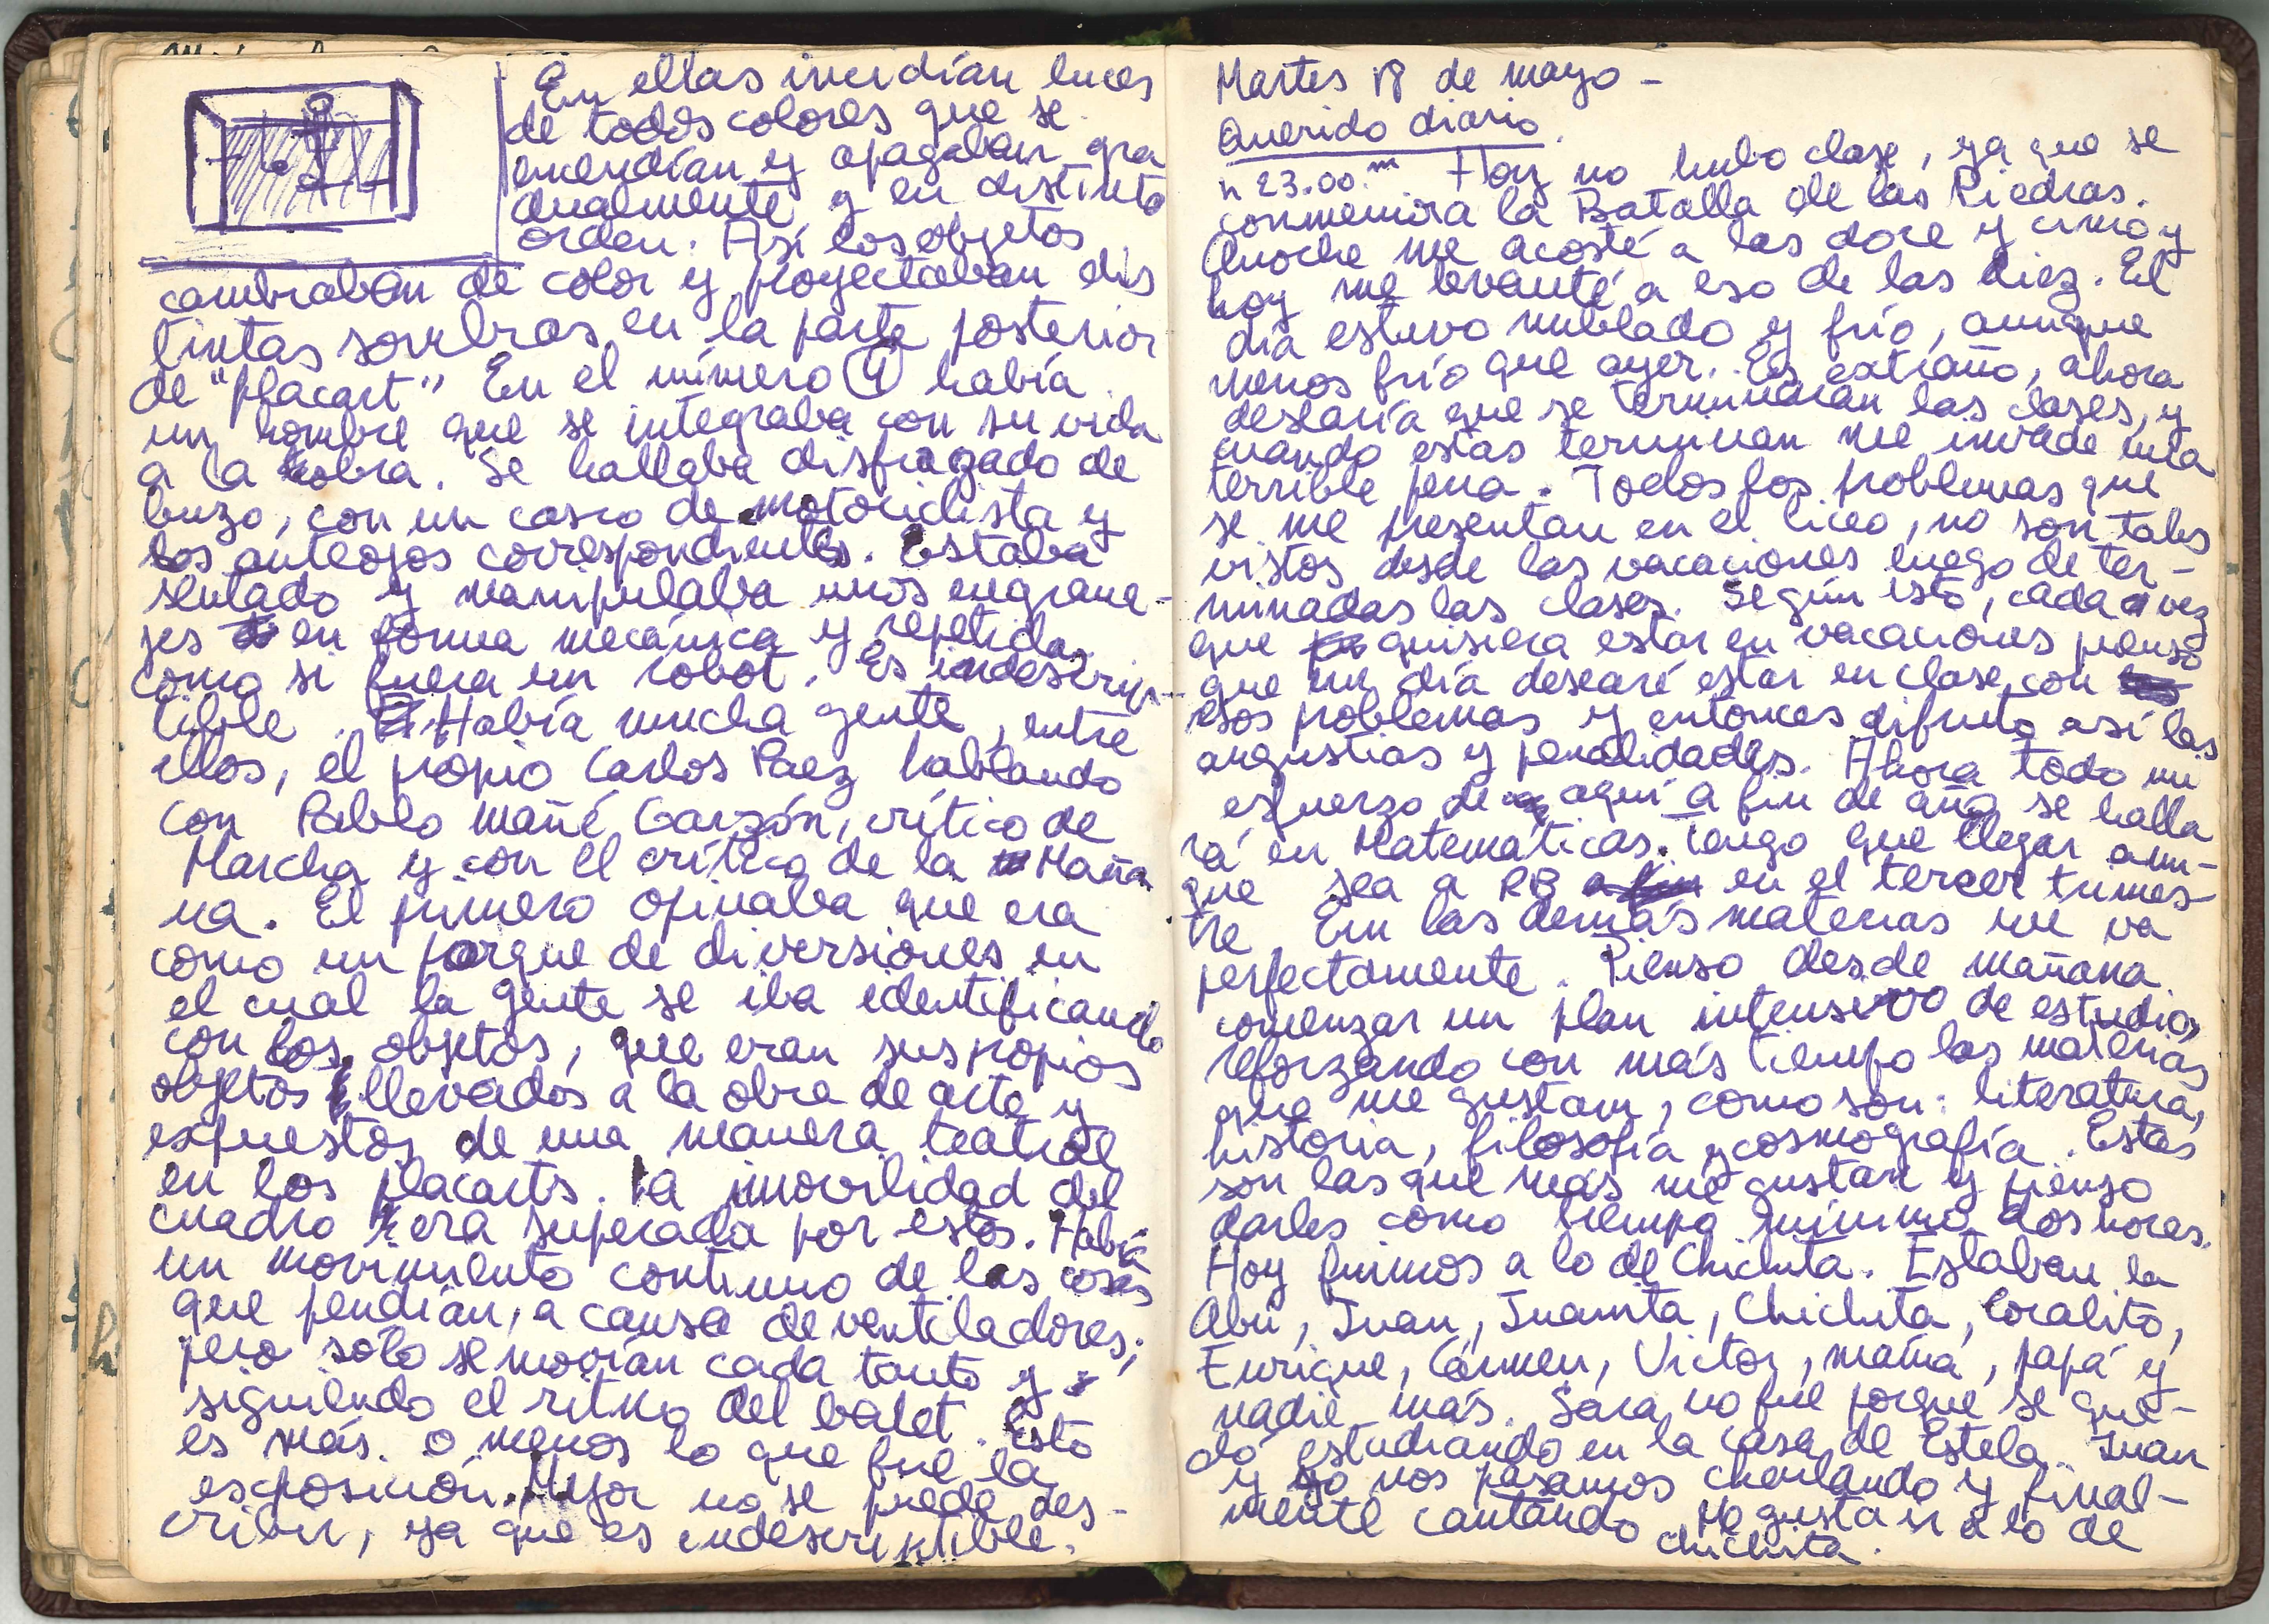 En ellas incidían luces
de todos colores que se
encendían y apagaban gra
dualmente y en distinto
orden. Así los objetos
cambiaban de color y proyectaban dis
tintas sombras en la parte posterior
de "placart" En el número había
un hombre que se integraba con su vida
a la obra. Se hallaba disfrazado de
buzo, con un casco de motociclista y
los anteojos correspondientes. Estaba
sentado y manipulaba unos engrana-
jes en forma mecánica y repetida
como si fuera un robot. Es indescrip-
tible. Había mucha gente, entre
ellos, el propio Carlos Paez hablando
con Pablo Mañé Garzón, crítico de
Marcha y con el crítico de la Maña
na. El primero opinaba que era
como un parque de diversiones en
el cual la gente se iba identificando
con los objetos, que eran sus propios
objetos llevados a la obra de arte y
expuestos de una manera teatral
en los placarts. La inmovilidad del
cuadro era superada por estos. Había
un movimiento continuo de las cosas
que pendían, a causa de ventiladores;
pero solo se movían cada tanto y
siguiendo el ritmo del balet. Esto
es más o menos lo que fue la
exposición. Mejor no se puede des-
cribir, ya que es indescriptible.
Martes 18 de mayo -
Querido diario.
h 23.00.m Hoy no hubo clase, ya que se
conmemora la Batalla de las Piedras.
Anoche me acosté a las doce y cinco y
hoy me levanté a eso de las diez. El
día estuvo nublado y frío, aunque
menos frío que ayer. Es extraño, ahora
desearía que se terminaran las clases, y
cuando estas terminan me invade una
terrible pena. Todos los problemas que
se me presentan en el liceo, no son tales
vistos desde las vacaciones luego de ter-
minadas las clases. Según esto, cada vez
que quisiera estar en vacaciones pienso
que un día desearé estar en clase con
esos problemas y entonces difruto así las
angustias y penalidades. Ahora todo mi
esfuerzo de aquí a fin de año se halla
rá en Matemáticas. Tengo que llegar aun-
que sea a RB en el tercer trimes-
tre En las demás materias me va
perfectamente. Pienso desde mañana
comenzar un plan intensivo de estudio,
reforzando con más tiempo las materias
que me gustan, como son: literatura,
historia, filosofía y cosmografía. Estas
son las que más me gustan y pienso
darles como tiempo mínimo dos horas.
Hoy fuimos a lo de Chichita. Estaban la
Abu, Juan, Juanita, Chichita, Coralito,
Enrique, Cármen, Victor, mamá, papá y
nadie más. Sara no fue porque se que-
dó estudiando en la casa de Estela. Juan
y yo nos pasamos charlando y final-
mente cantando Me gusta ir a lo de
chichita.